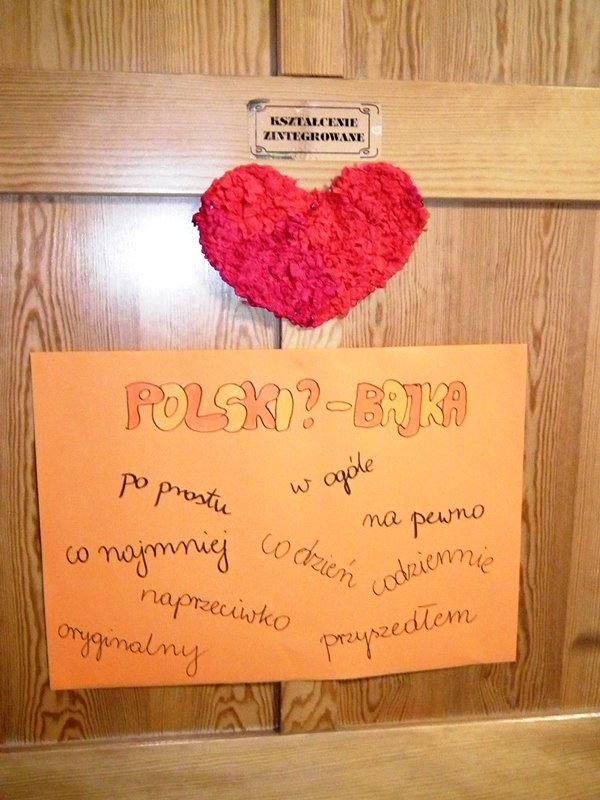 KSZTAŁCENIE
ZINTEGROWANE
POLSKI? - BAJKA
po prostu
w ogóle
na pewno
co najmniej
co dzień
codziennie
naprzeciwko
oryginalny
przyszedłem